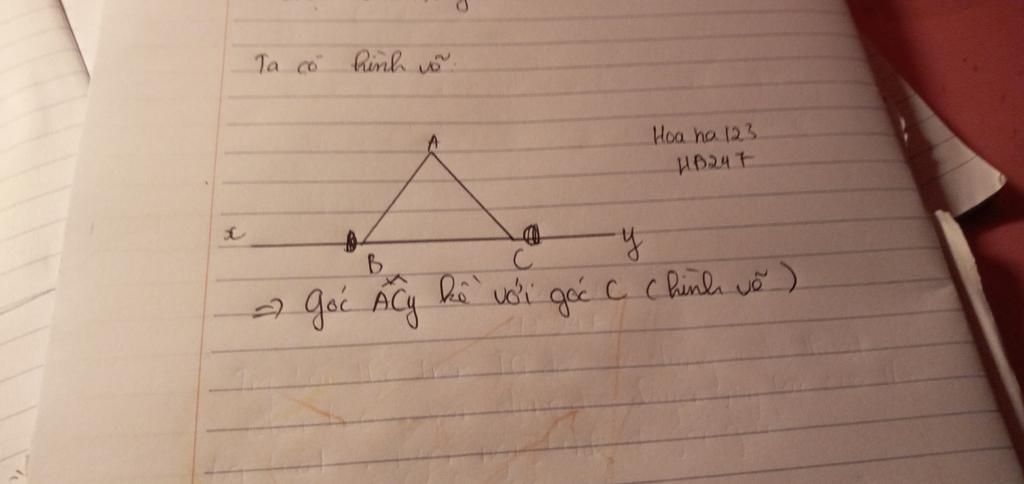 Ta có hình vẽ:
Hoa ha 123
HB247
A
x
y
B
C
=> góc ACy kề với góc C (hình vẽ)